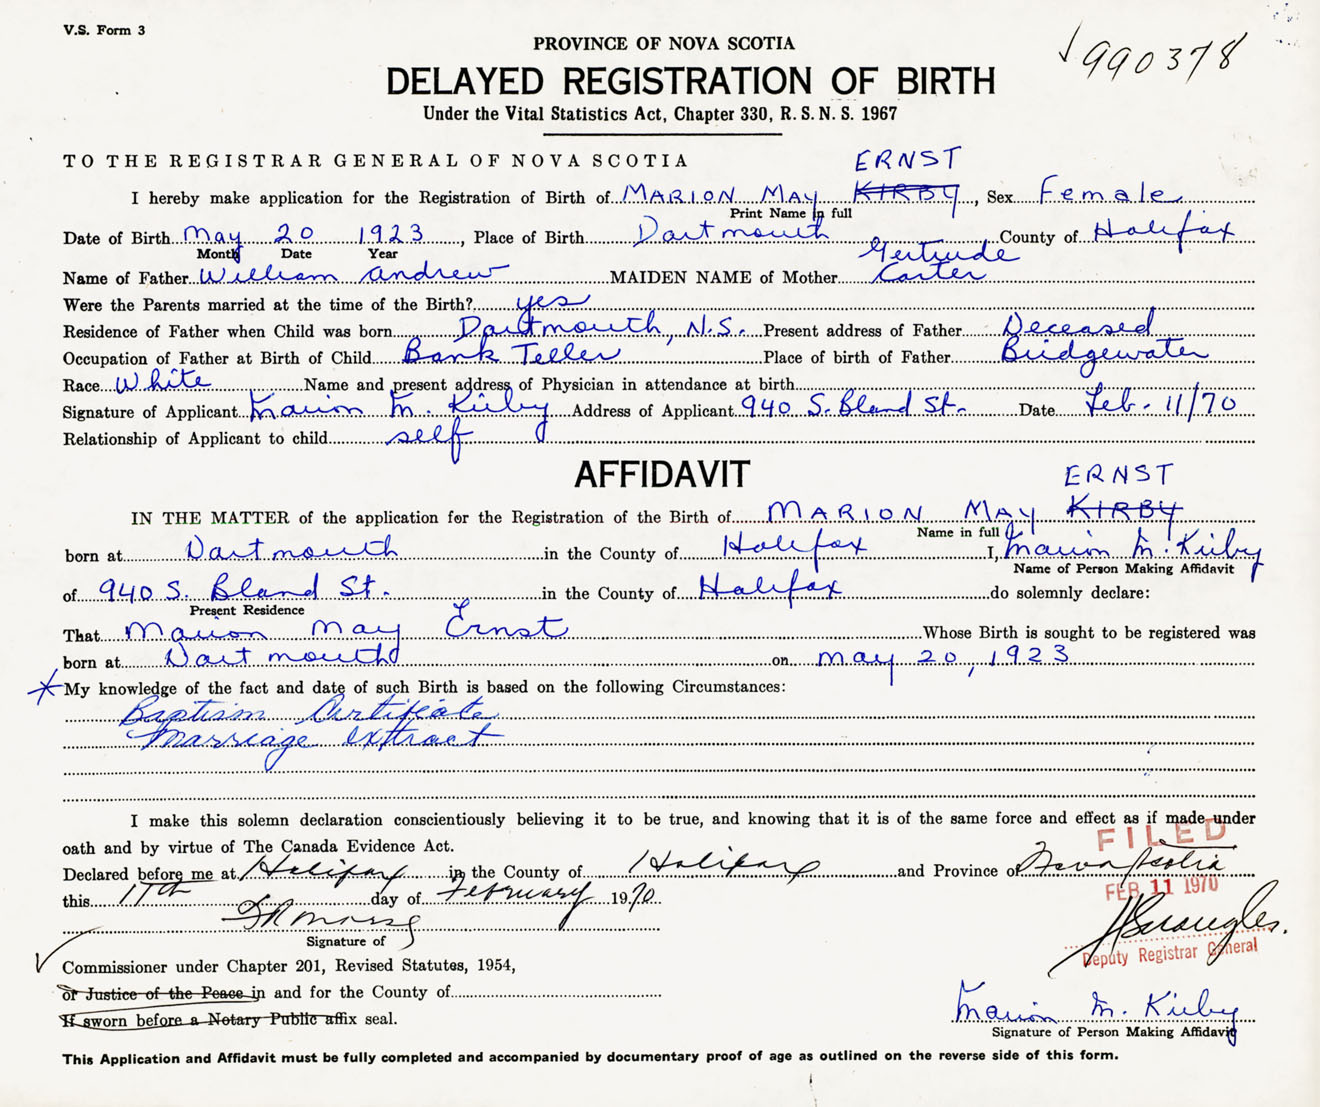 V.S. Form 3
PROVINCE OF NOVA SCOTIA
990378
DELAYED REGISTRATION OF BIRTH
Under the Vital Statistics Act, Chapter 330, R. S. N. S. 1967
TO THE REGISTRAR GENERAL OF NOVA SCOTIA
ERNST
I hereby make application for the Registration of Birth of MARION MAY KIRBY, Sex Female
Print Name in full
Date of Birth May 20 1923, Place of Birth Dartmouth County of Halifax
Month Date Year
Gertrude
Name of Father William Andrew MAIDEN NAME of Mother Carter
Were the Parents married at the time of the Birth? yes
Residence of Father when Child was born Dartmouth, N.S. Present address of Father Deceased
Occupation of Father at Birth of Child Bank Teller Place of birth of Father Bridgewater
Race White Name and present address of Physician in attendance at birth
Signature of Applicant Marion M. Kirby Address of Applicant 940 S. Bland St. Date Feb. 11/70
Relationship of Applicant to child self
AFFIDAVIT
ERNST
IN THE MATTER of the application for the Registration of the Birth of MARION MAY KIRBY
Name in full
born at Dartmouth in the County of Halifax I, Marion M. Kirby
Name of Person Making Affidavit
of 940 S. Bland St. in the County of Halifax do solemnly declare:
Present Residence
That Marion May Ernst Whose Birth is sought to be registered was
born at Dartmouth on May 20, 1923
My knowledge of the fact and date of such Birth is based on the following Circumstances:
Baptism Certificate
Marriage extract
I make this solemn declaration conscientiously believing it to be true, and knowing that it is of the same force and effect as if made under
oath and by virtue of The Canada Evidence Act.
FILED
Declared before me at Halifax in the County of Halifax and Province of Nova Scotia
FEB 11 1970
this 11th day of February 1970.
Signature of
Deputy Registrar General
Commissioner under Chapter 201, Revised Statutes, 1954,
or Justice of the Peace in and for the County of
If sworn before a Notary Public affix seal.
Marion M. Kirby
Signature of Person Making Affidavit
This Application and Affidavit must be fully completed and accompanied by documentary proof of age as outlined on the reverse side of this form.